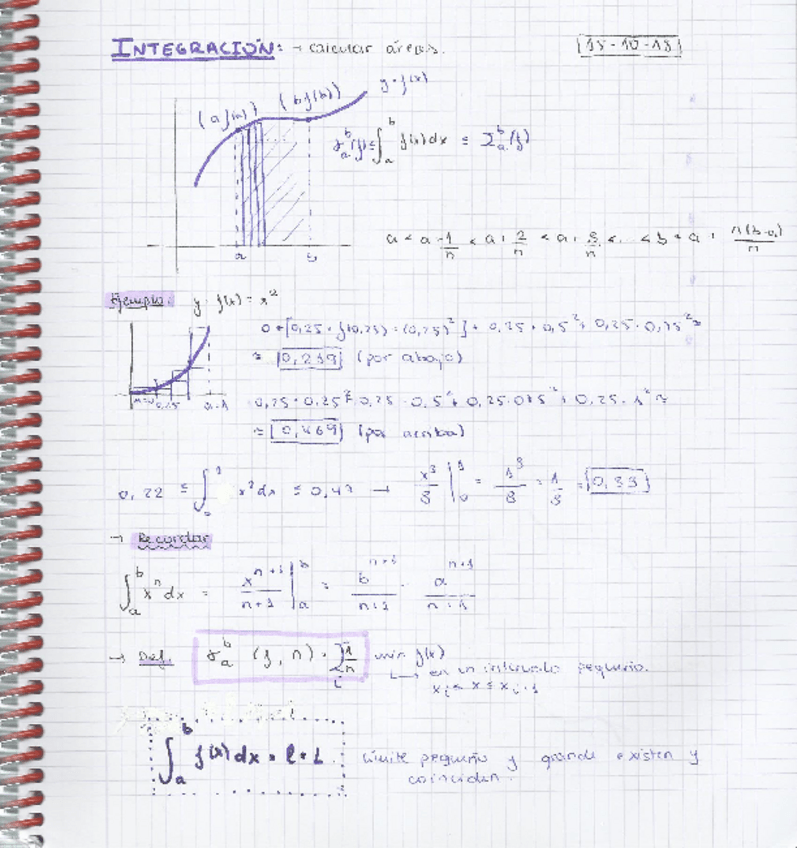 INTEGRACIÓN: → calcular áreas. 15-10-15
(a f(a)) (b f(b)) y=f(x)
∫_a^b f(x)dx ≤ Σ_a^b (f)
a b
Ejemplo: y=f(x)=x²
0+[0,25·f(0,25)=(0,25)²]+0,25·0,5²+0,25·0,75²≈
≈ 0,219 (por abajo)
0,25·0,25²+0,25·0,5²+0,25·0,75²+0,25·1²≈
≈ 0,469 (por arriba)
0,22 ≤ ∫_0^1 x²dx ≤ 0,47 → x³/3 |_0^1 = 1³/3 = 1/3 = 0,33
→ Recordar
∫_a^b x^n dx = x^(n+1)/(n+1) |_a^b = b^(n+1)/(n+1) - a^(n+1)/(n+1)
→ Def. (f, n) = Σ_i 1/n min f(x)
↳ en un intervalo pequeño.
x_i ≤ x ≤ x_i+1
∫_a^b f(x)dx = l = L Límite pequeño y grande existen y
coinciden.